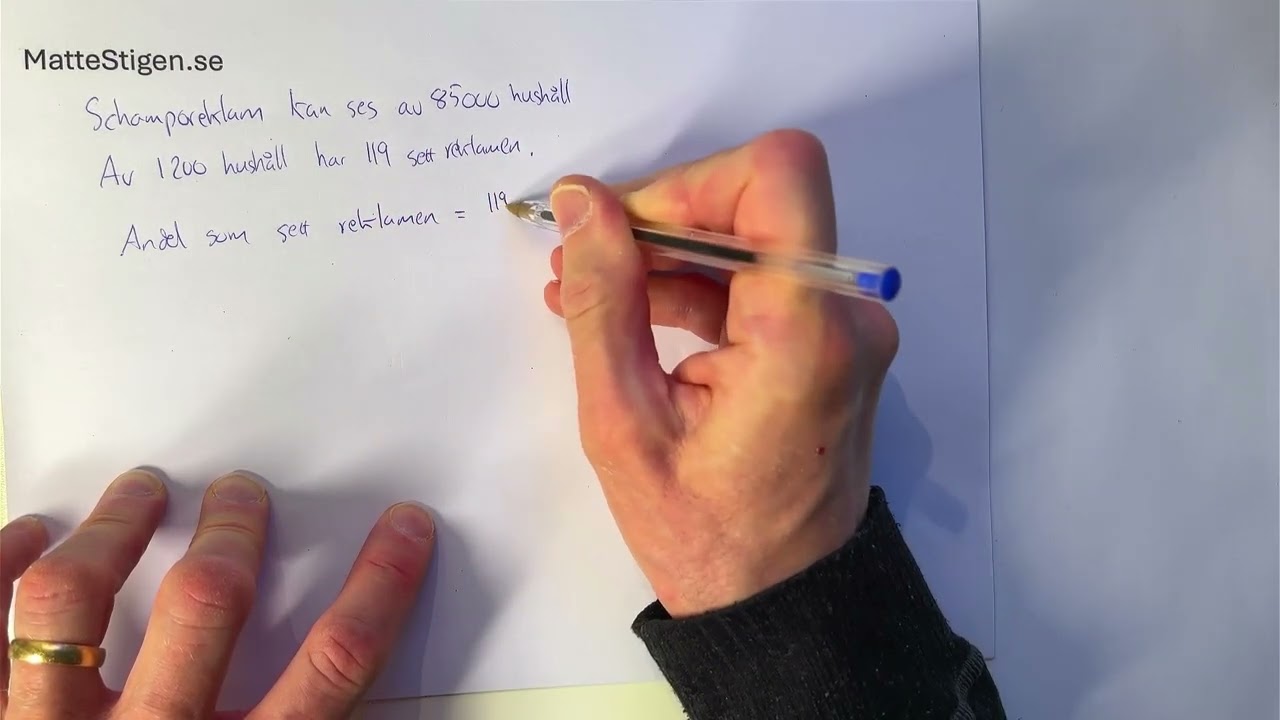 MatteStigen.se
Schamporeklam kan ses av 85000 hushåll
Av 1200 hushåll har 119 sett reklamen.
Andel som sett reklamen = 119